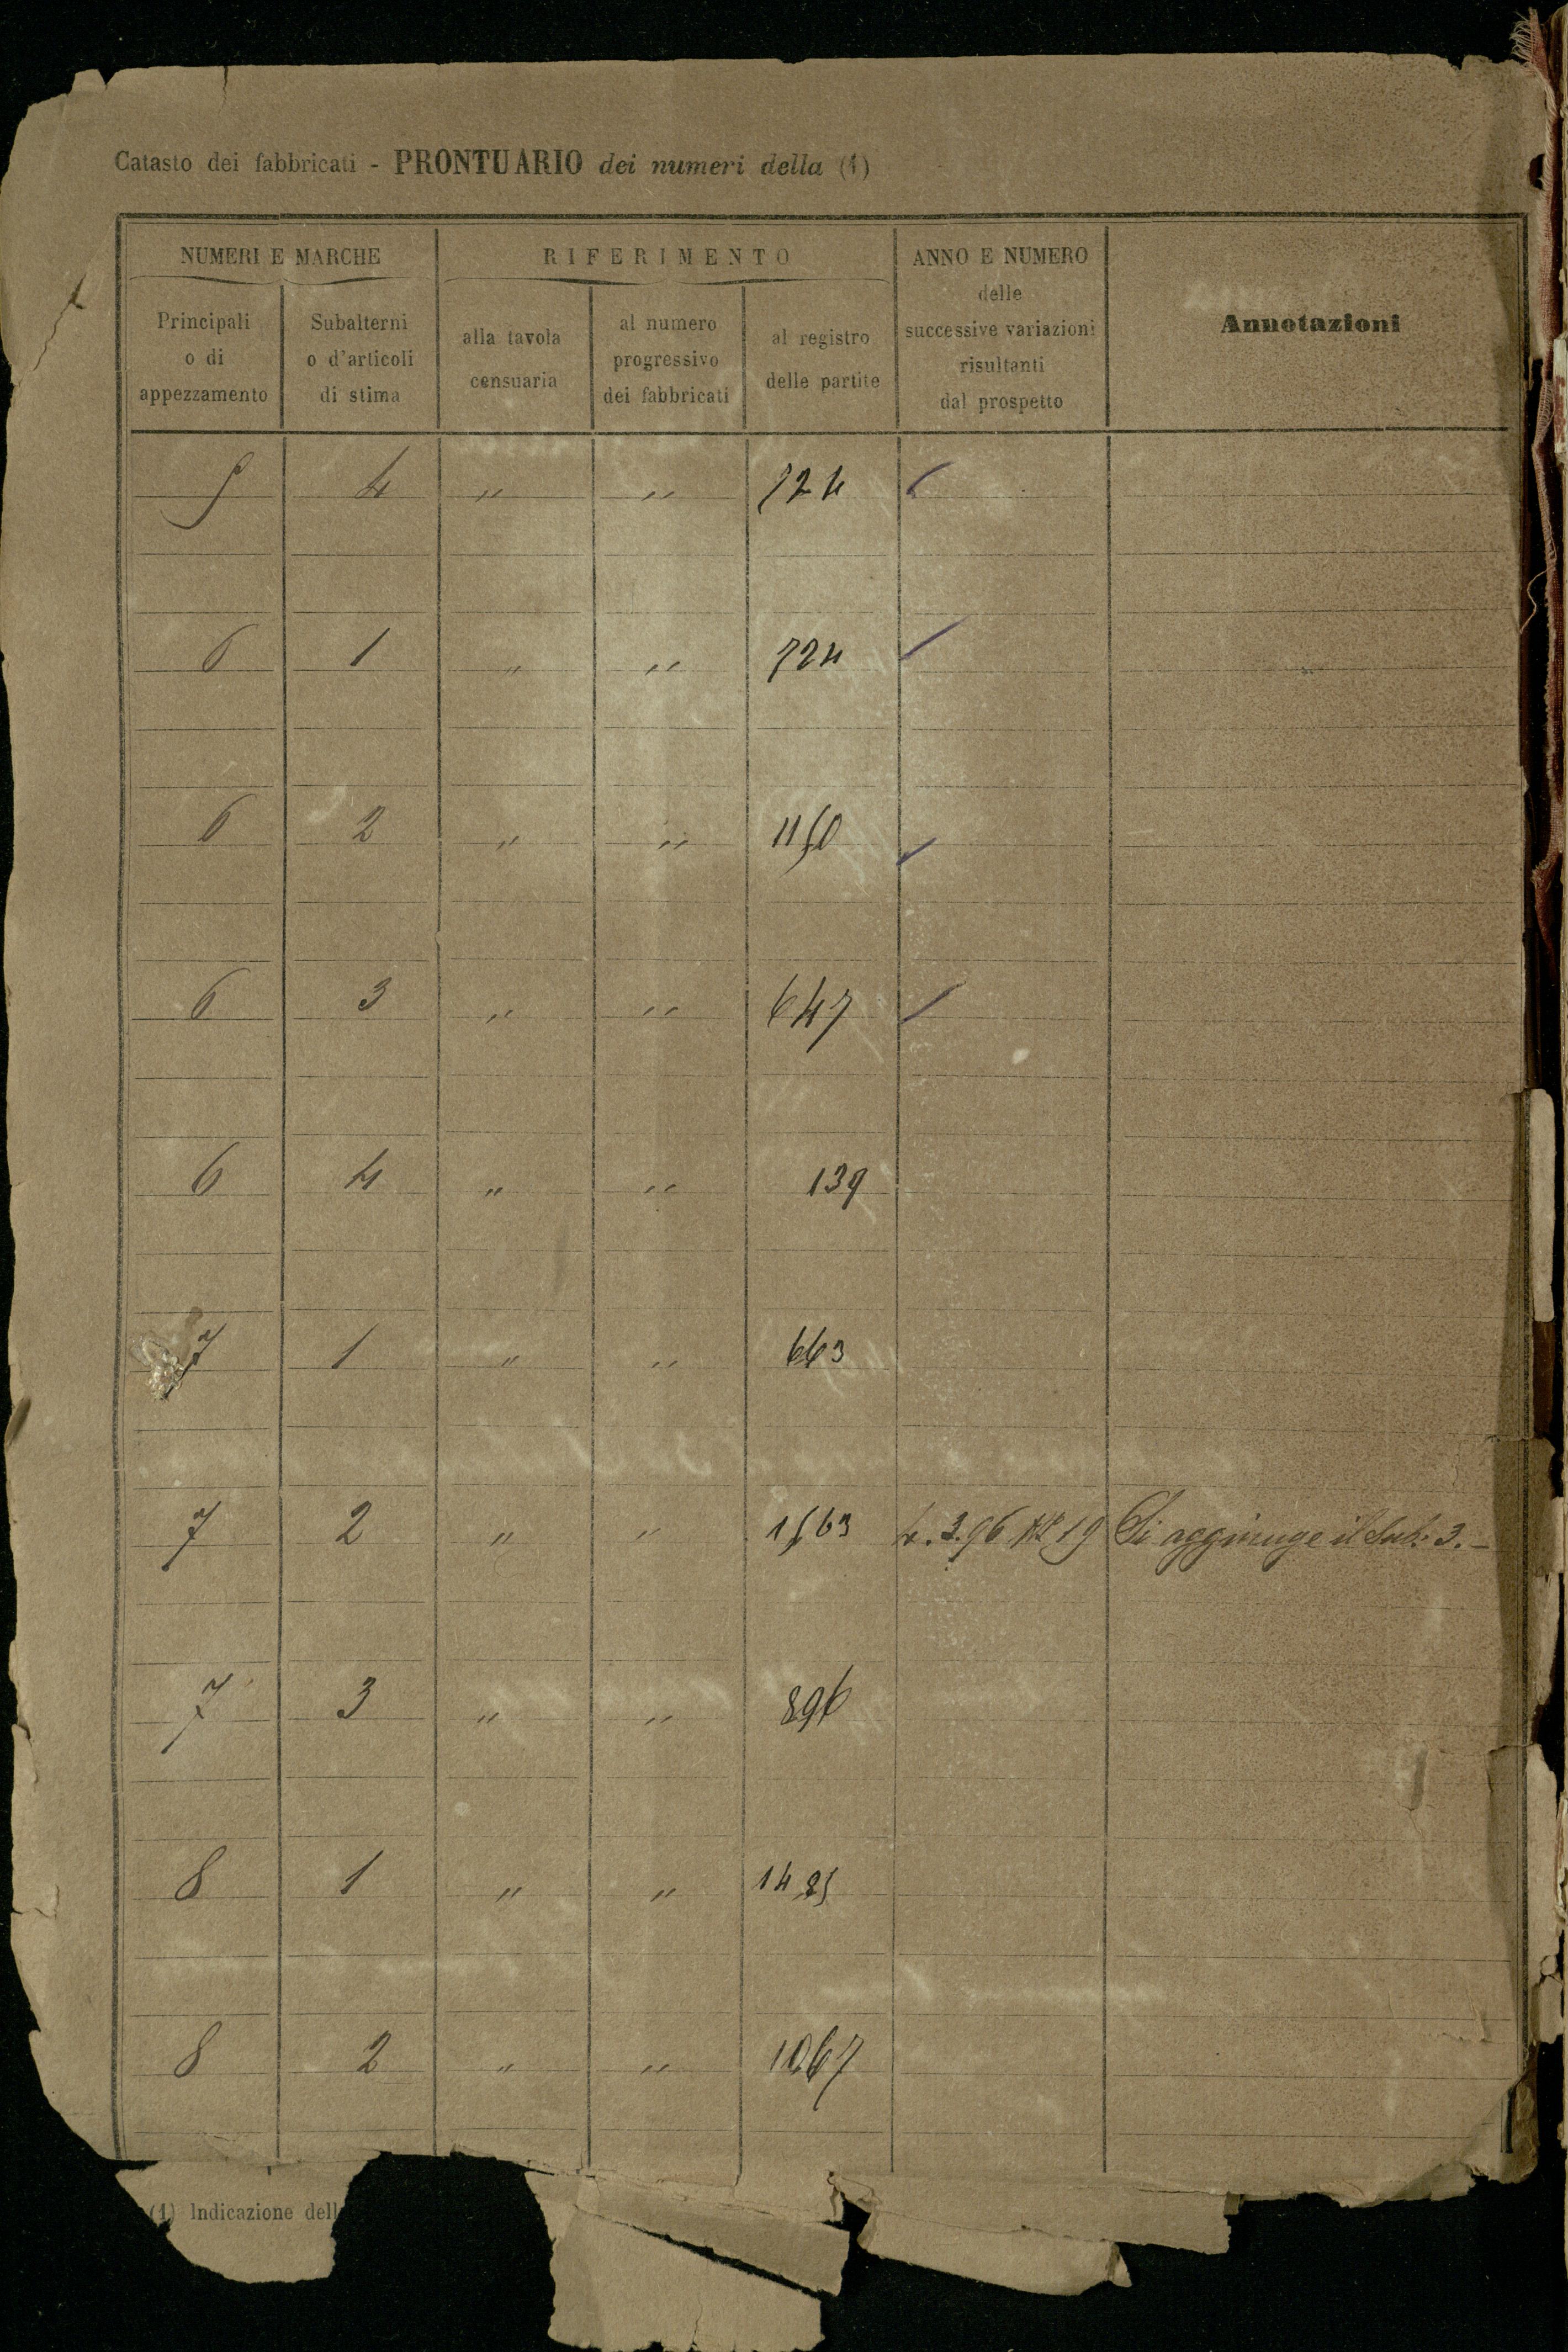 Catasto dei fabbricati - PRONTUARIO dei numeri della (1)
NUMERI E MARCHE RIFERIMENTO ANNO E NUMERO delle successive variazioni risultanti dal prospetto Annotazioni
Principali o di appezzamento Subalterni o d'articoli di stima alla tavola censuaria al numero progressivo dei fabbricati al registro delle partite
5 4 " " 724
6 1 " " 724
6 2 " " 1150
6 3 " " 647
6 4 " " 139
7 1 " " 663
7 2 " " 1563 3.96 19 Si aggiunge il Sub. 3. -
7 3 " " 896
8 1 " " 1485
8 2 " " 1067
(1) Indicazione dell